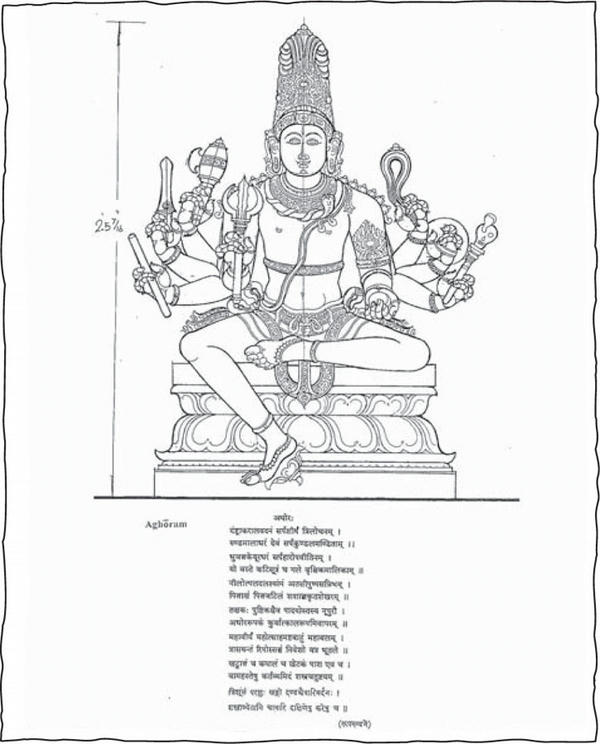 2'.5 7/16"
Aghōram
अघोरः
दंष्ट्राकरालवदनं सर्पशीर्षं त्रिलोचनम् ।
रुण्डमालाधरं देवं सर्पकुण्डलमण्डितम् ।।
भुजङ्गकेयूरधरं सर्पहारोपवीतिनम् ।
यो धस्ते कटिसूत्रं च गले वृश्चिकमालिकाम् ॥
नीलोत्पलदलश्यामं अतसीपुष्पसन्निभम् ।
पिङ्गाक्षं पिङ्गजटिलं शशाङ्ककृतशेखरम् ॥
तक्षकः पुष्टिकश्चैव पादयोस्तस्य नूपुरौ ।
अघोररूपके कुर्यात्कालरूपमिवापरम् ॥
महावीर्यं महोत्साहमष्टबाहुं महाबलम् ।
त्रासयन्तं रिपोस्सङ्घं निवेशो यत्र भूतले ॥
खट्वाङ्गं च कपालं च खेटकं पाश एव च ।
वामहस्तेषु कर्तव्यमिदं शस्त्रचतुष्टयम् ॥
त्रिशूलं परशुः खड्गो दण्डश्चैवारिमर्दनः ।
शस्त्राण्येतानि चत्वारि दक्षिणेषु करेषु च ॥